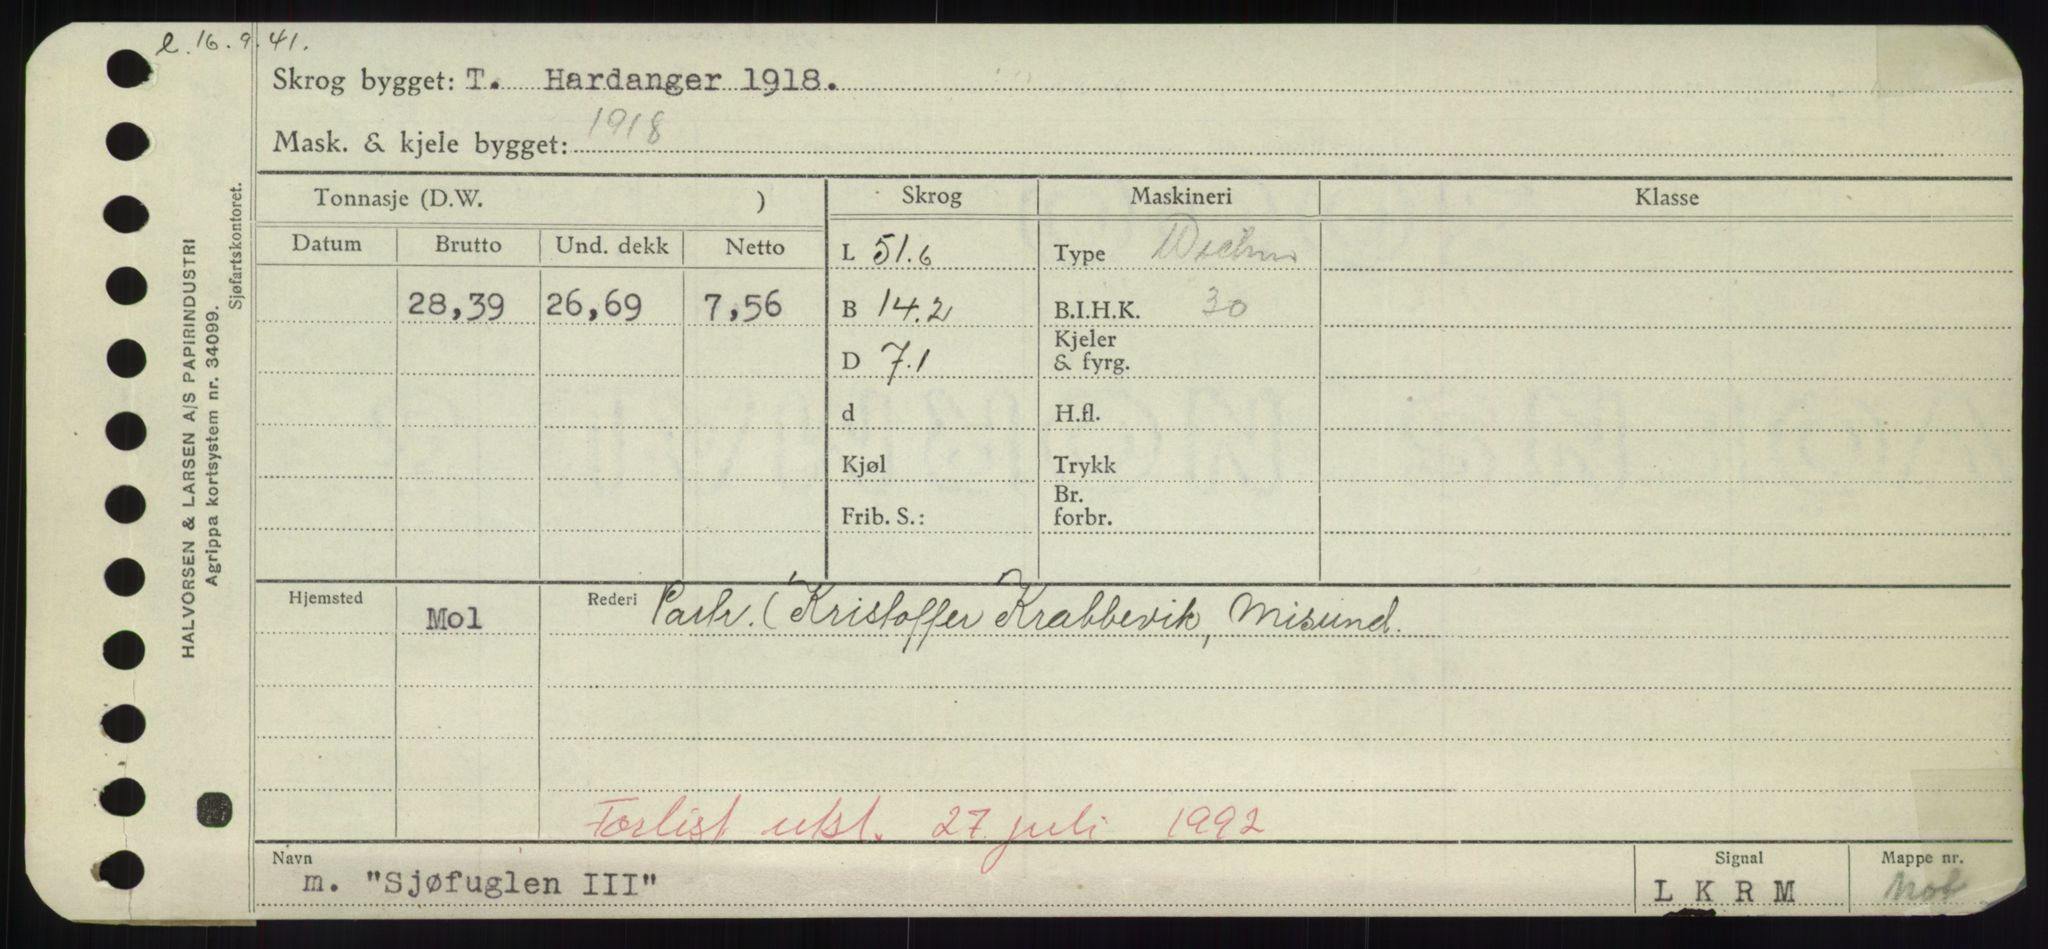 l. 16.9.41.
Skrog bygget: T. Hardanger 1918.
Mask. & kjele bygget: 1918
Tonnasje (D.W. ) Skrog Maskineri Klasse
Datum Brutto Und. dekk Netto L 51.6 Type
28,39 26,69 7,56 B 14.2 B.I.H.K. 30
D 7.1 Kjeler & fyrg.
d H.fl.
Kjøl Trykk
Frib. S.: Br. forbr.
Hjemsted Mol Rederi Partr. (Kristoffer Krabbevik, Misund.
Forlist utst. 27. juli 1992
Navn Signal Mappe nr.
m. "Sjøfuglen III" L K R M
HALVORSEN & LARSEN A/S PAPIRINDUSTRI
Agrippa kortsystem nr. 34099.
Sjøfartskontoret.